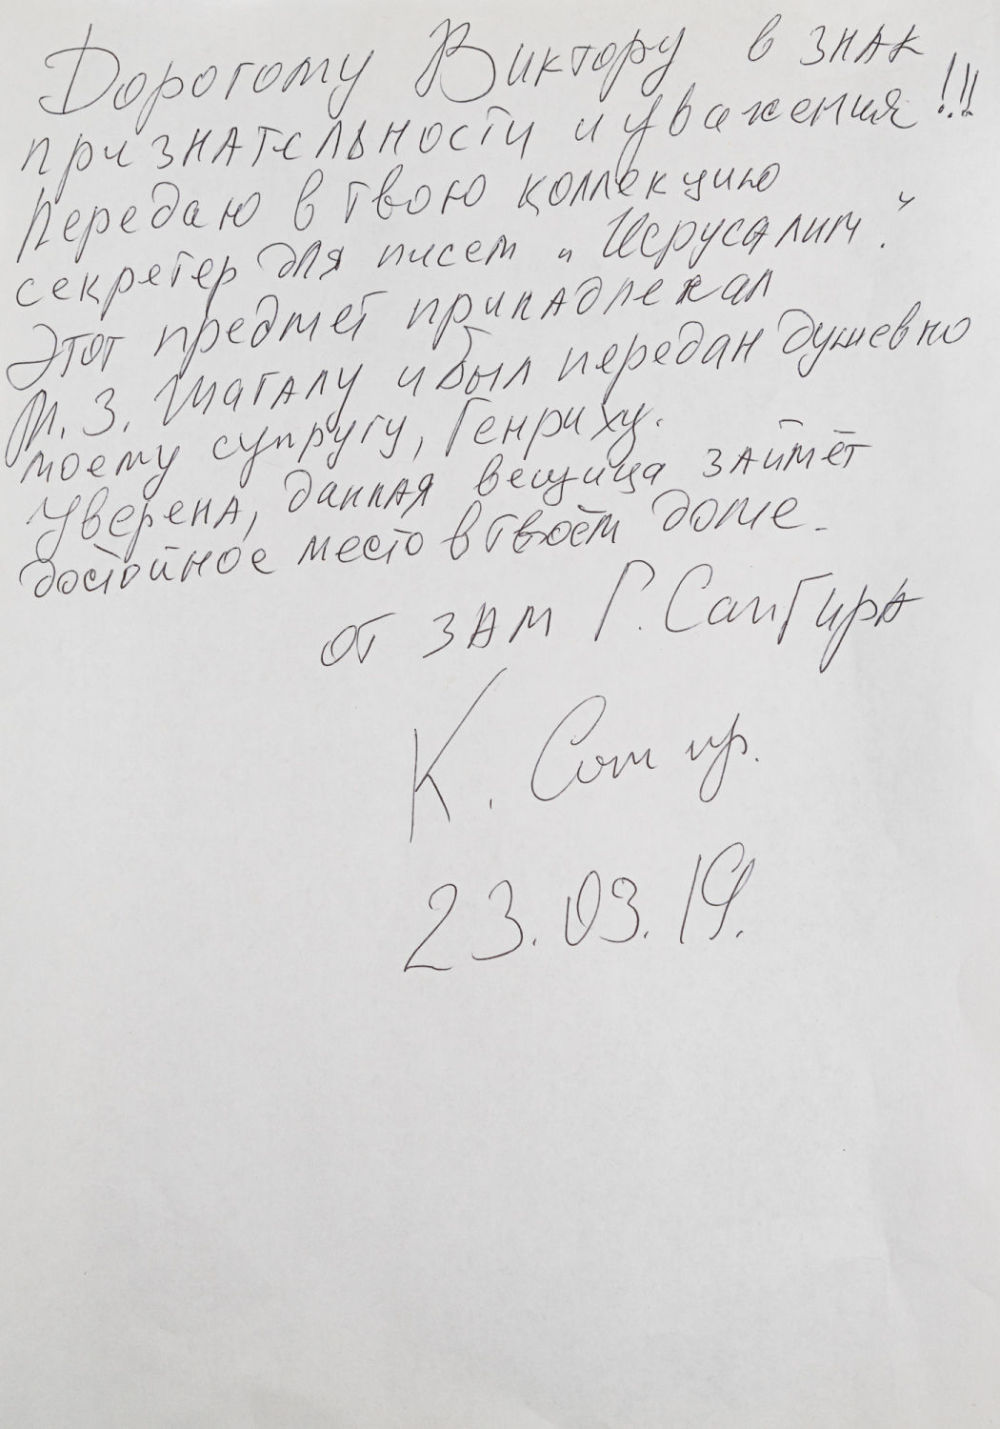 Дорогому Виктору в знак
признательности и уважения!!!
Передаю в твою коллекцию
секретер для писем „Иерусалим".
Этот предмет принадлежал
М. З. Шагалу и был передан душевно
моему супругу, Генриху.
Уверена, данная вещица займёт
достойное место в твоём доме.
от зам Г. Сапгира
К. Сапгир.
23.03.19.